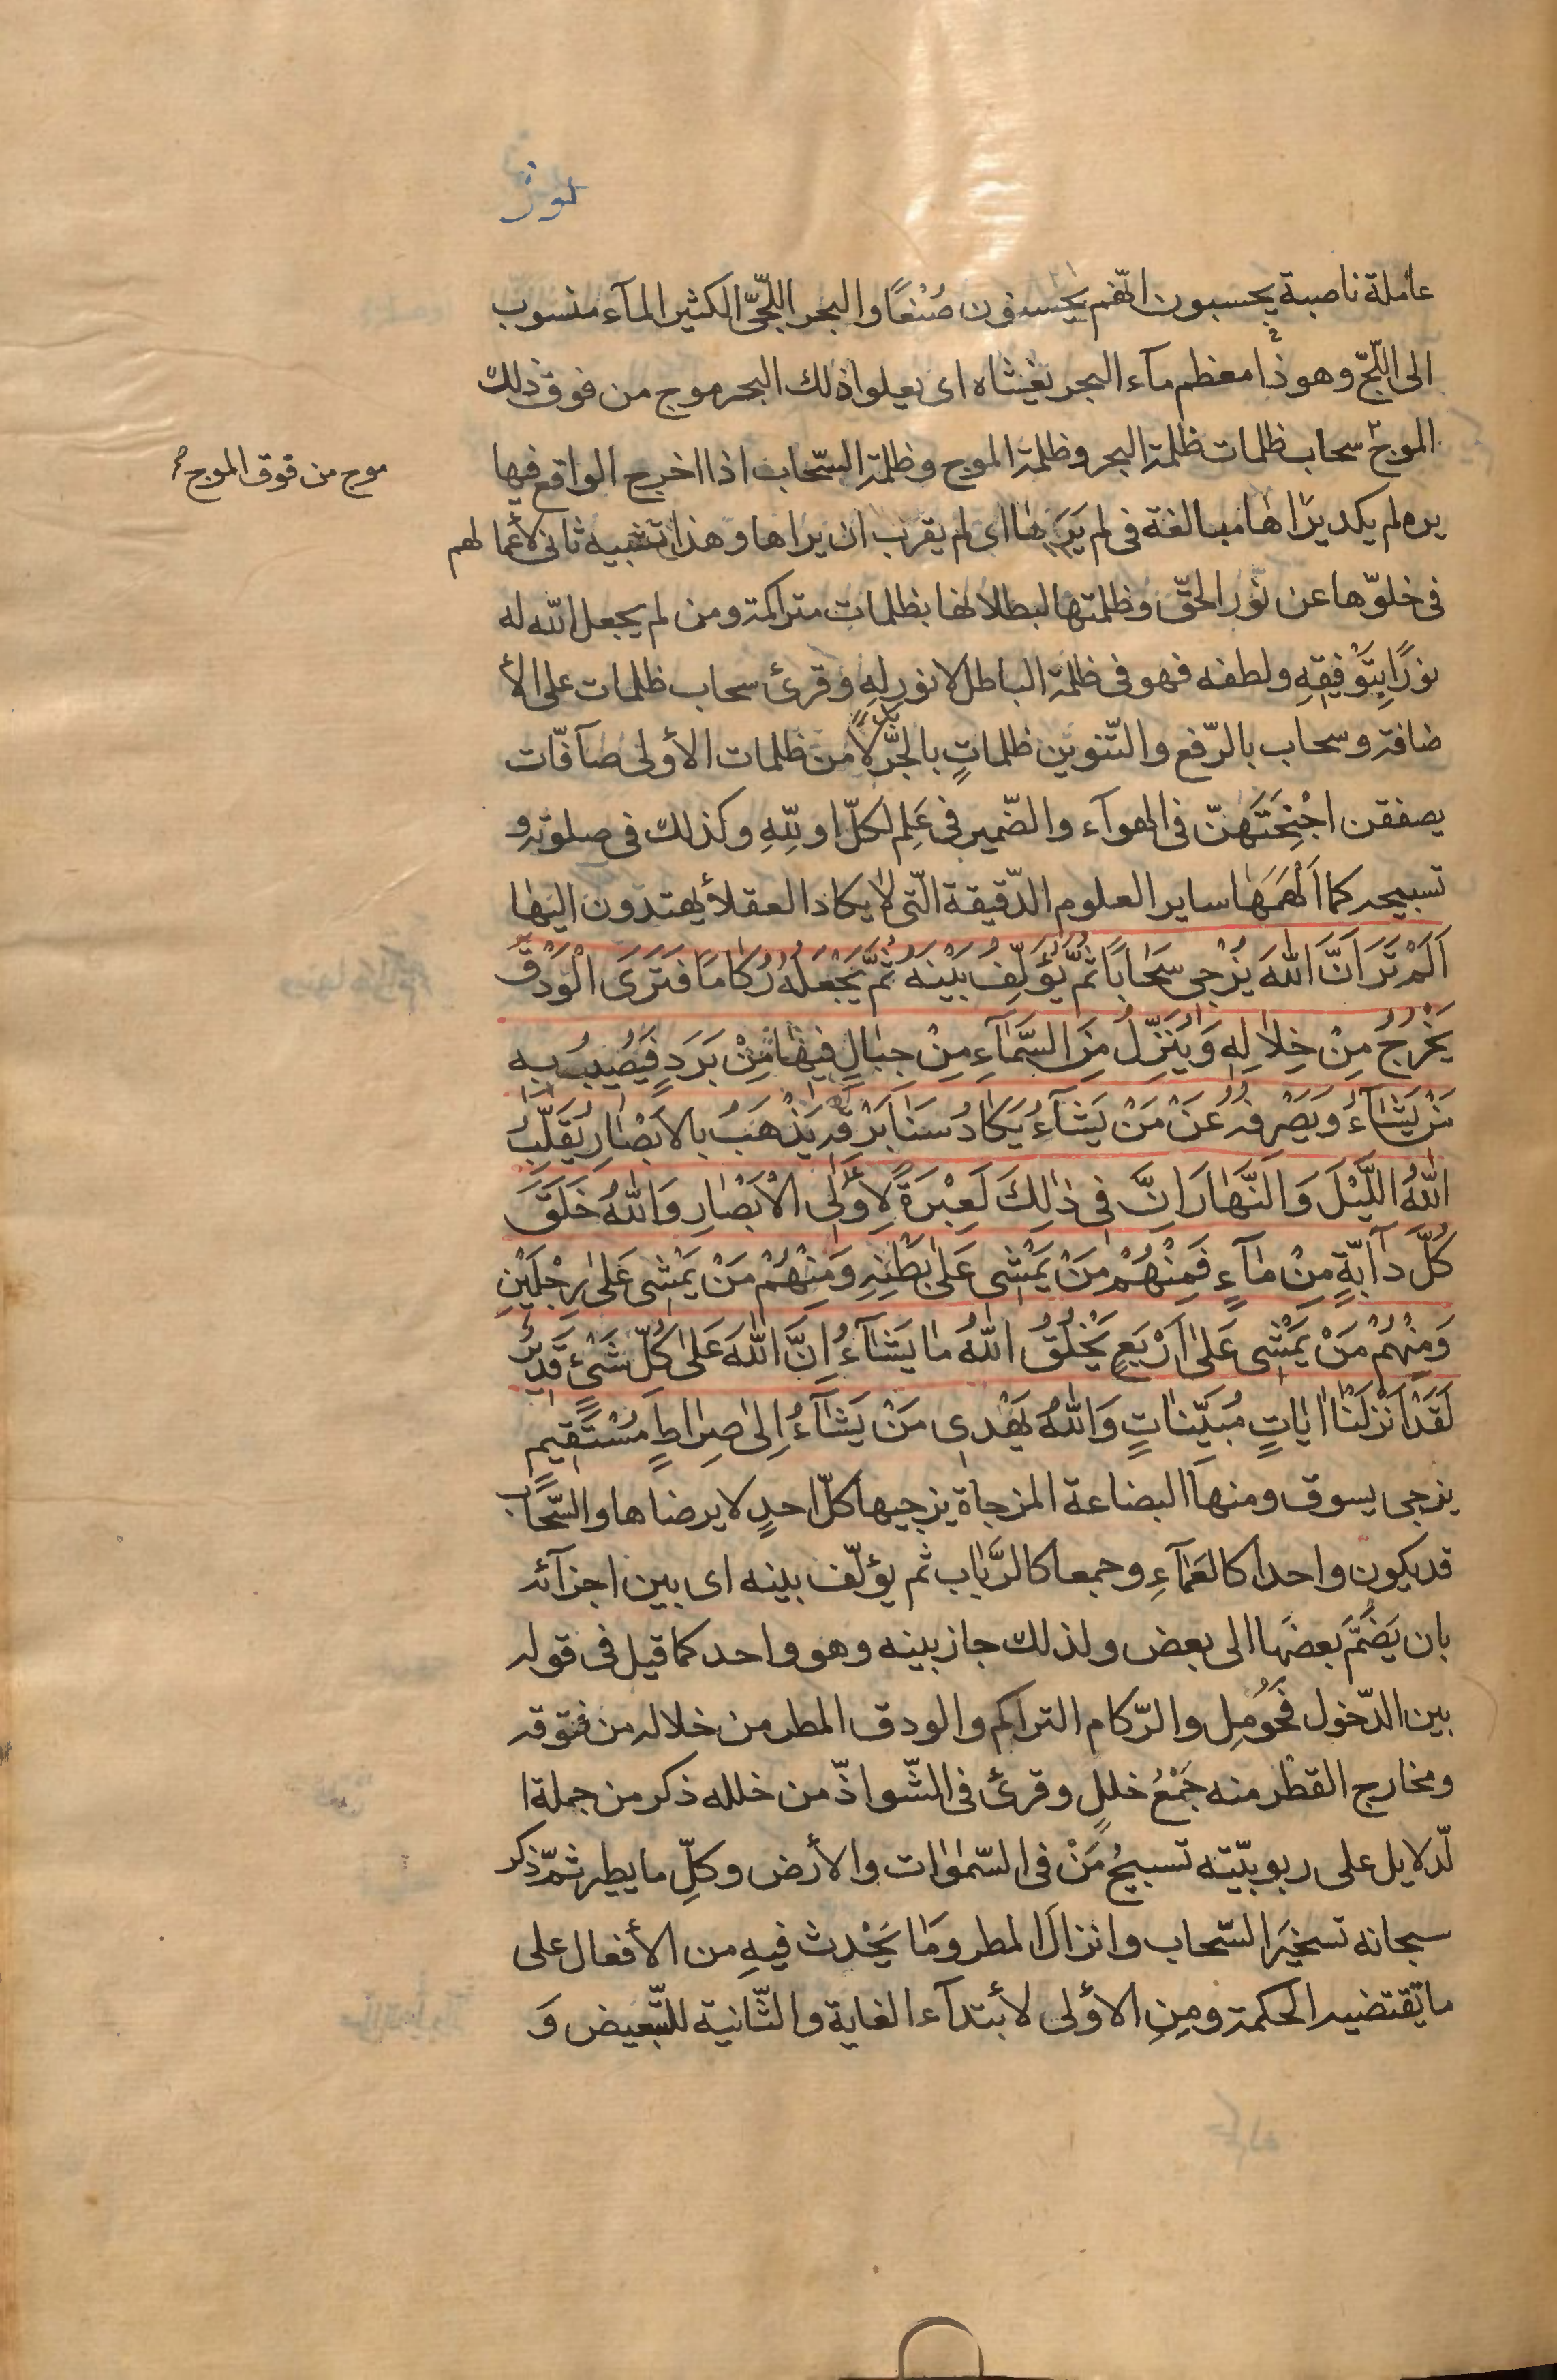 نور
عاملة ناصبة يحسبون انّهم يحسنون صُنْعًا والبحر اللّجّیّ الكثير المآء منسوب
الى اللّجّ وهو ذا معظم مآء البحر يغشاه اى يعلوا ذلك البحر موج من فوق ذلك
الموج سحاب ظلمات ظلمة البحر وظلمة الموج وظلمة السّحاب اذا اخرج الواقع فيها
موج من فوق الموج
يده لم يكد يرٰاها مبالغة فى لم يَرَهٰا اى لم يقرب ان يراها وهذا تشبيه ثانى لأعما لهم
فى خلوّها عن نُور الحقّ وظلمتها لبطلانها بظلمات متراكمة ومن لم يجعل اللّه له
نورًا بِتَوْفيقِهِ ولطفه فهو فى ظلمة الباطل لا نور لهِ وقرئ سحاب ظلمات على الأ
ضافة وسحاب بالرّفع والتّنوين ظلماتٍ بالجّر بدلاً من ظلمات الأولى صآفّات
يصففن اجْنِحَتَهنّ فى الهوآء والضّمير فى عَلِم لكلّ او للّهِ وكذلك فى صلوته و
تسبيحه كما اَلْهَمَهٰا ساير العلوم الدّقيقة الّتى لا يكاد العقلأ يهتدون اليها
اَلَمْ تَرَ اَنَّ اللّٰهَ يُزْجى سَحٰابًا ثُمَّ يُؤَلِّفُ بَيْنَهُ ثُمَّ يَجْعَلُهُ رُكٰامًا فَتَرَى الْوَدْقَ
يَخْرُجُ مِنْ خِلاٰلِهِ وَيُنَزِّلُ مِنَ السَّمٰآءِ مِنْ جِبٰالٍ فيهٰا مِنْ بَرَدٍ فَيُصيبُ بِهِ
مَنْ يَشٰآءُ وَيَصْرِفُهُ عَنْ مَنْ يَشٰآءُ يَكٰادُ سَنٰا بَرْقِهِ يَذْهَبُ بِالاَبْصٰارِ يُقَلِّبُ
اللّٰهُ اللَّيْلَ وَالنَّهٰارَ اِنَّ فى ذٰلِكَ لَعِبْرَةً لِأُولِى الْاَبْصٰارِ وَاللّٰهُ خَلَقَ
كُلَّ دٰآبَّةٍ مِنْ مٰآءٍ فَمِنْهُمْ مَنْ يَمْشى عَلٰى بَطْنِهِ وَمِنْهُمْ مَنْ يَمْشى عَلٰى رِجْلَيْنِ
وَمِنْهُمْ مَنْ يَمْشى عَلٰى اَرْبَعٍ يَخْلُقُ اللّٰهُ مٰا يَشٰآءُ اِنَّ اللّٰهَ عَلٰى كُلِّ شَىْءٍ قَديرٌ
لَقَدْ اَنْزَلْنٰا اٰيٰاتٍ مُبَيِّنٰاتٍ وَاللّٰهُ يَهْدى مَنْ يَشٰآءُ اِلٰى صِرٰاطٍ مُسْتَقيمٍ
يزجى يسوق ومنها البضاعة المزجاة يزجيها كلّ احدٍ لا يرضاها والسّحاب
قد يكون واحدا كالعَمٰآءِ وجمعا كالرَّبٰاب ثم يؤلّف بينه اى بين اجزآئه
بان يَضُمَّ بعضَها الى بعض ولذلك جاز بينه وهو واحد كما قيل فى قوله
بين الدّخول فَحَوْمِل والرّكام التراكم والودق المطر من خلاله من فتوقه
ومخارج القطْر منه جَمْعُ خللٍ وقرئ فى الشّواذّ من خلله ذكر من جملة ا
لّدلايل على ربوبيّته تسبيحُ مَنْ فى السّمٰوٰات والأرض وكلِّ ما يطير ثمّ ذكر
سبحانه تسخيَر السّحاب وانزالَ المطر ومٰا يَحْدث فيهِ من الأفعال على
ما تقتضيه الحكمة ومِنِ الاؤلى لأبتدآء الغاية والثّانية للتّبعيض وَ